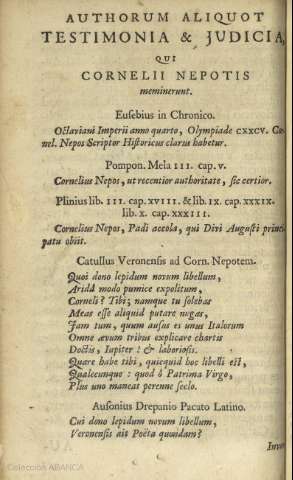 AUTHORUM ALIQUOT
TESTIMONIA & JUDICIA,
QUI
CORNELII NEPOTIS
meminerunt.
Eusebius in Chronico.
Octaviani Imperii anno quarto, Olympiade CXXCV. Cor-
nel. Nepos Scriptor Historicus clarus habetur.
Pompon. Mela III. cap. V.
Cornelius Nepos, ut recentior authoritate, sic certior.
Plinius lib. III. cap. XVIII. & lib. IX. cap. XXXIX.
lib. X. cap. XXXIII.
Cornelius Nepos, Padi accola, qui Divi Augusti princi-
patu obiit.
Catullus Veronensis ad Corn. Nepotem.
Quoi dono lepidum novum libellum,
Aridâ modo pumice expolitum,
Corneli? Tibi; namque tu solebas
Meas esse aliquid putare nugas,
Jam tum, quum ausus es unus Italorum
Omne ævum tribus explicare chartis
Doctis, Iupiter! & laboriosis.
Quare habe tibi, quicquid hoc libelli est,
Qualecunque: quod ô Patrima Virgo,
Plus uno maneat perenne seclo.
Ausonius Drepanio Pacato Latino.
Cui dono lepidum novum libellum,
Veronensis ait Poëta quondam?
Colección ABANCA